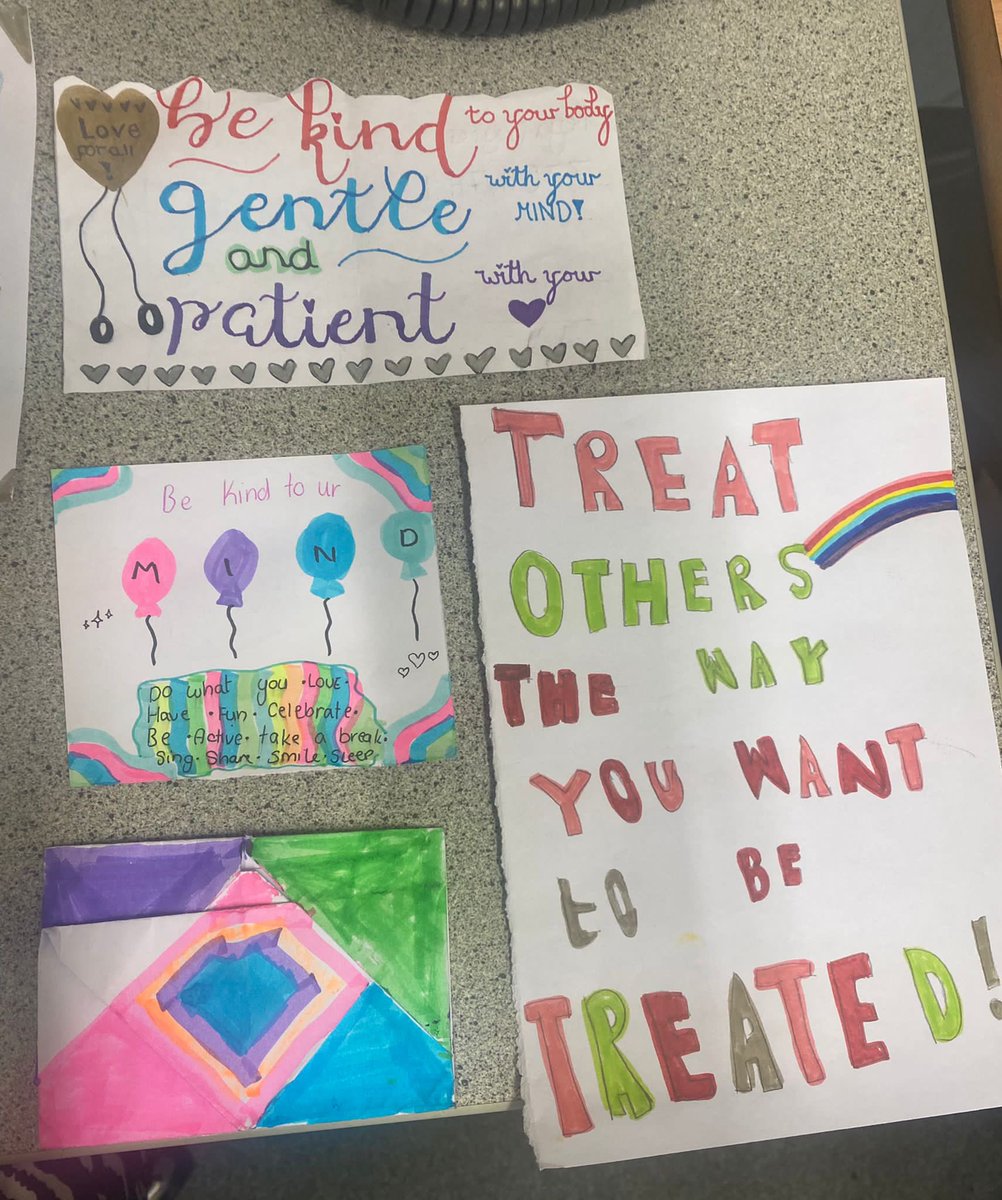 Love
for all
!
be kind to your body
gentle with your
MIND!
and
patient with your
Be Kind to ur
MIND
Do what you • LOVE •
Have • Fun • Celebrate •
Be • Active • take a break •
Sing • Share • Smile • Sleep
TREAT
OTHERS
THE WAY
YOU WANT
to BE
TREATED!